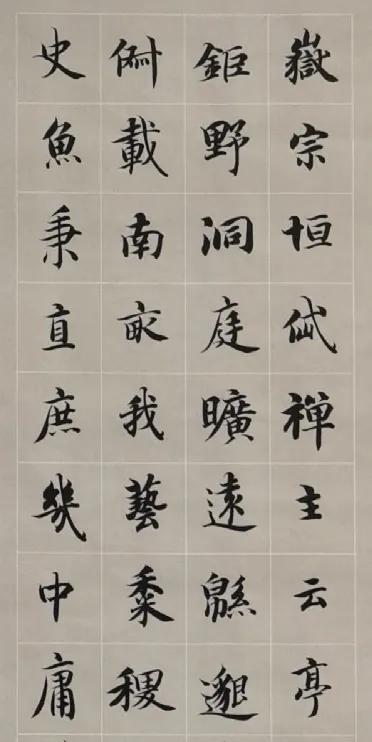 嶽宗恒岱禅主云亭
鉅野洞庭曠遠緜邈
俶載南畝我藝黍稷
史魚秉直庶幾中庸